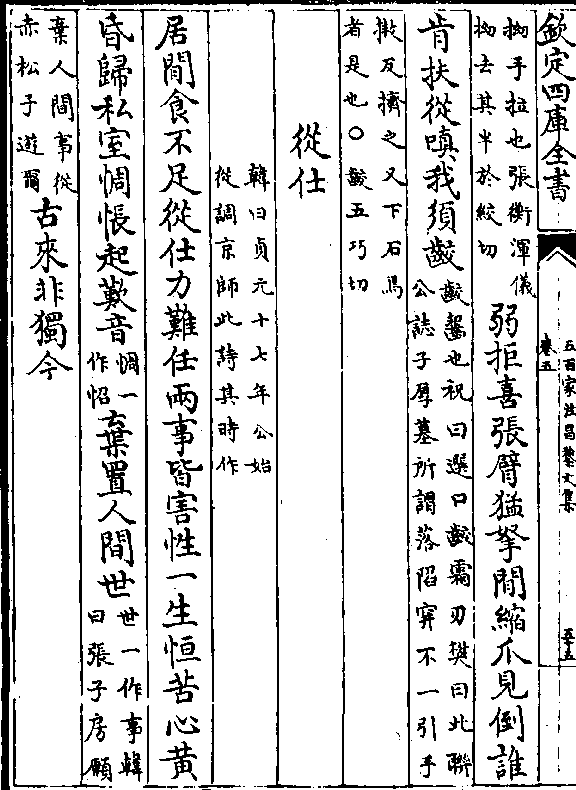 欽定四庫全書
五百家注昌黎文集
卷五
五十五
拗手拉也張衡渾儀
拗去其半於絞切
弱拒喜張臂猛拏閒縮爪見倒誰
肯扶從嗔我須齩
齩齧也祝曰選口齩霜刃樊曰此聯
公誌子厚墓所謂落陷穽不一引手
救反擠之又下石焉
者是也○齩五巧切
從仕
韓曰貞元十七年公始
從調京師此詩其時作
居閒食不足從仕力難任兩事皆害性一生恒苦心黃
昏歸私室惆悵起歎音
惆一
作怊
棄置人間世
世一作事韓
曰張子房願
棄人間事從
赤松子遊爾
古來非獨今